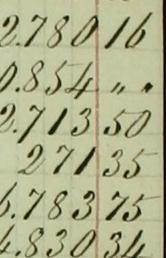 2.780 16
0.854 " "
2.713 50
271 35
6.783 75
4.830 34